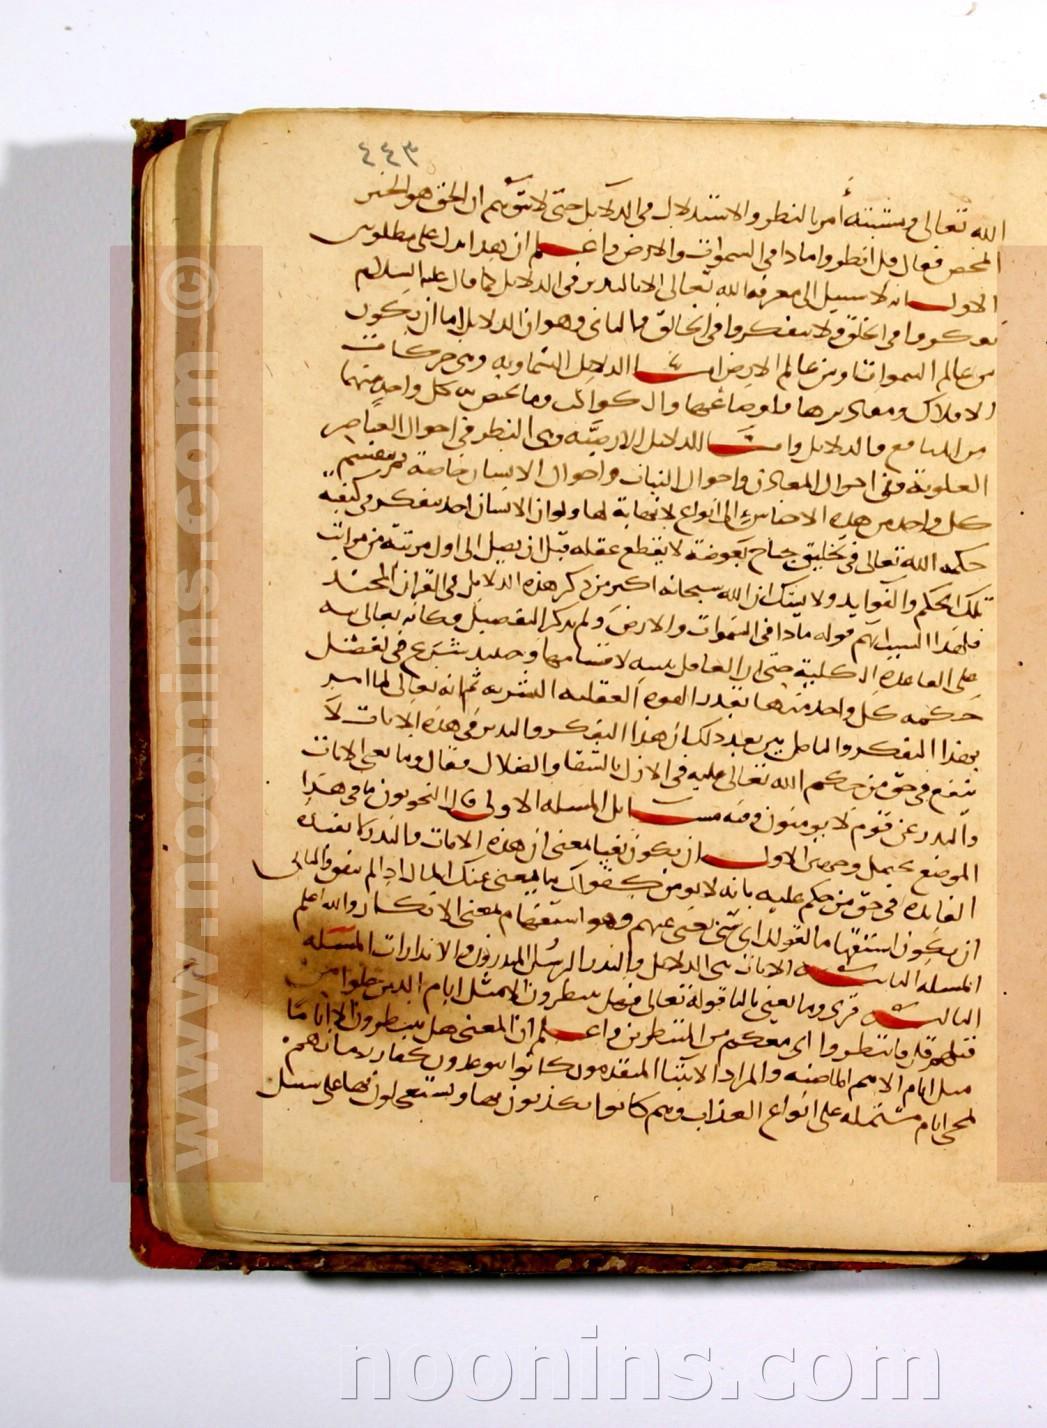 ٤٤٣
الله تعالى ومشيته أمر بالنظر والاستدلال في الدلايل حتى لا يتوهم ان الحق هو الجبر
المحض فقال قل انظروا ماذا في السموات والارض واعلم ان هذا يدل على مطلوبين
الاول انه لا سبيل الى معرفة الله تعالى الا بالتدبر في الدلايل كما قال عليه السلام
تفكروا في الخلق ولا تتفكروا في الخالق والثاني وهو ان الدلايل اما ان يكون
من عالم السموات او من عالم الارض اما الدلايل السماوية وهي حركات
الافلاك ومقاديرها واوضاعها والكواكب وما يختص به كل واحد منها
من المنافع والدلايل واما الدلايل الارضية وهي النظر في احوال العناصر
العلوية وفي احوال المعادن واحوال النبات واحوال الانسان خاصة ثم ينقسم
كل واحد من هذه الاجناس الى انواع لا نهاية لها ولو ان الانسان اخذ يتفكر في كيفية
حكمة الله تعالى في تخليق جناح بعوضة لانقطع عقله قبل ان يصل الى اول مرتبة من مراتب
تلك الحكم والفوايد ولا شك ان الله سبحانه اكثر من ذكر هذه الدلايل في القران المجيد
فلهذا السبب قوله ماذا في السموات والارض ولم يذكر التفصيل وكانه تعالى نبه
على القاعدة الكلية حتى ان العاقل يتنبه لاقسامها وحينئذ يشرع في تفصيل
حكمة كل واحد منها بقدر القوة العقلية البشرية ثم انه تعالى لما امر
بهذا التفكر والتامل بين بعد ذلك ان هذا التفكر والتدبر في هذه الايات لا
ينفع في حق من حكم الله تعالى عليه في الازل بالشقا والضلال فقال وما تغني الايات
والنذر عن قوم لا يومنون وفيه مسايل المسله الاولى قال النحويون ما في هذا
الموضع يحتمل وجهين الاول ان يكون نفيا بمعنى ان هذه الايات والنذر لا تفيد
الفايدة في حق من حكم عليه بانه لا يومن كقولك ما يغني عنك المال اذا لم تنفق والثاني
ان يكون استفهاما كقولك اي شي يغني عنهم وهو استفهام بمعنى الانكار والله اعلم
المسله الثانيه الايات هي الدلايل والنذر الرسل المنذرون او الانذارات المسله
الثالثه قرى وما يغني باليا قوله تعالى فهل ينتظرون الا مثل ايام الذين خلوا من
قبلهم قل فانتظروا اني معكم من المنتظرين واعلم ان المعنى هل ينتظرون الا اياما
مثل ايام الامم الماضيه والمراد الانبيا المتقدمون كانوا يتوعدون كفار زمانهم
لمجي ايام مشتمله على انواع العذاب وهم كانوا يكذبون بها ويستعجلونها على سبيل
www.noonins.com ©
noonins.com